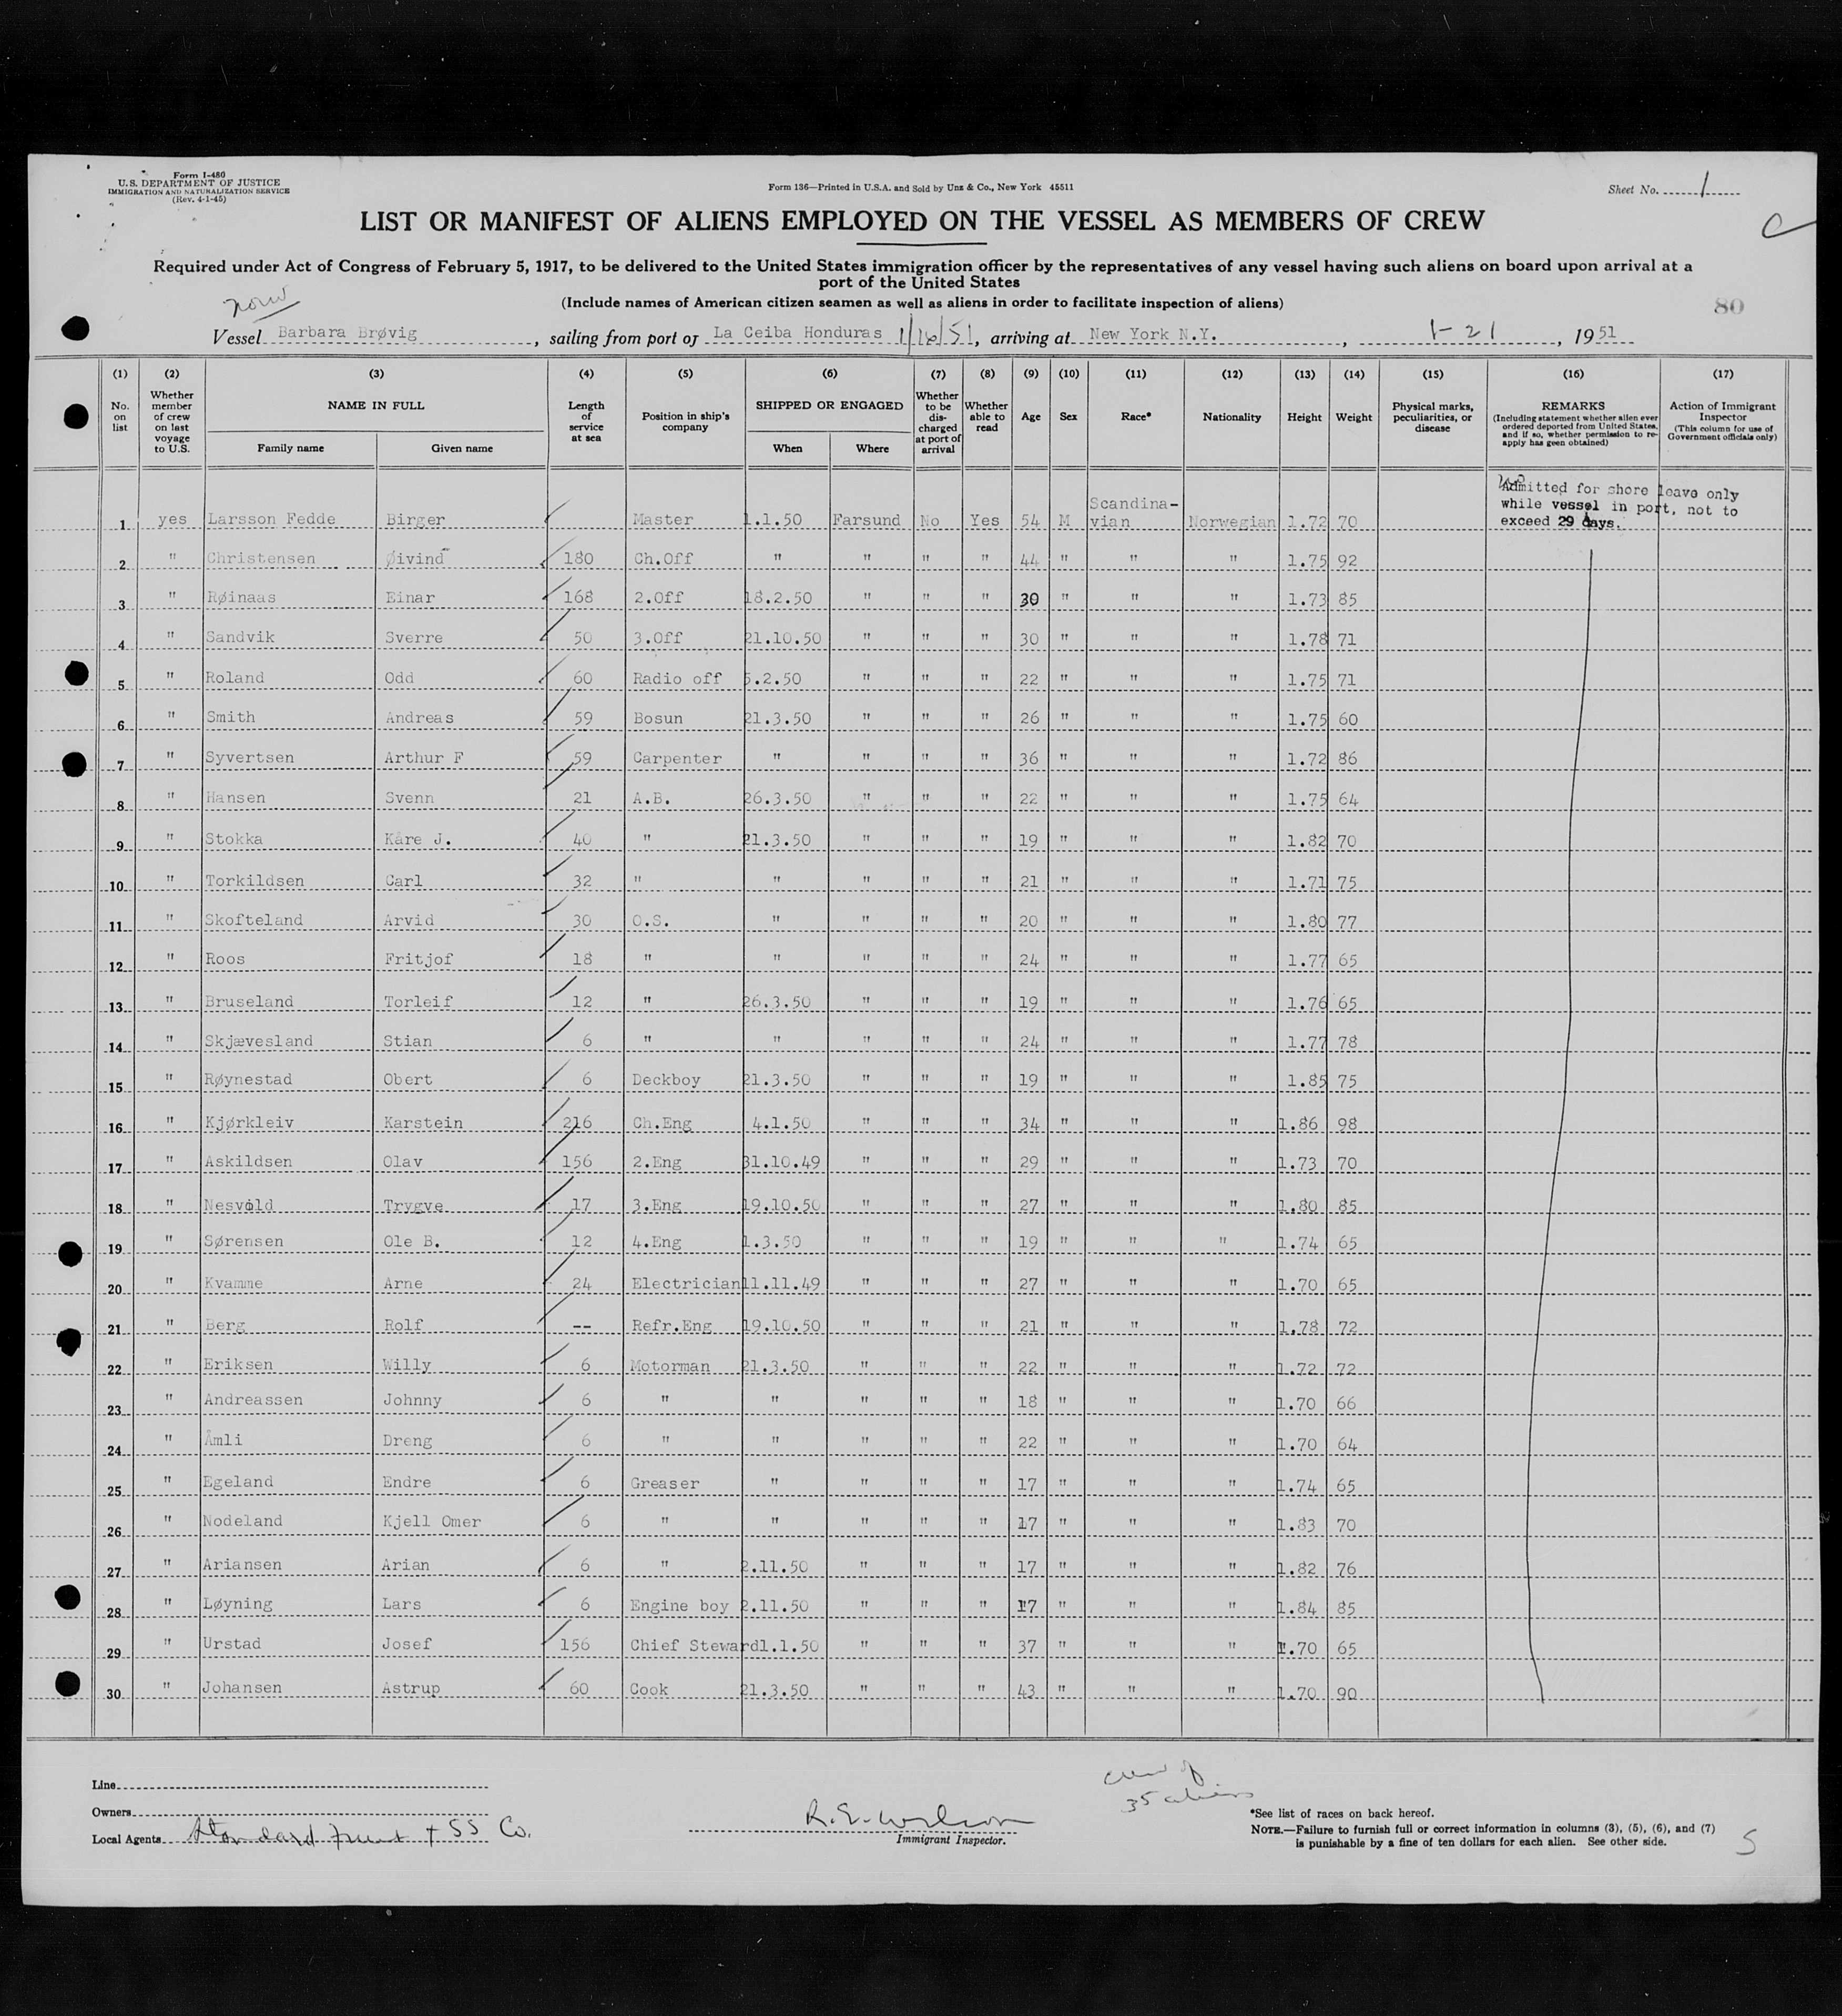 Form I-480
U.S. DEPARTMENT OF JUSTICE
IMMIGRATION AND NATURALIZATION SERVICE
(Rev. 4-1-45)
Form 136—Printed in U.S.A. and Sold by Unz & Co., New York 45511
Sheet No. 1
C
LIST OR MANIFEST OF ALIENS EMPLOYED ON THE VESSEL AS MEMBERS OF CREW
Required under Act of Congress of February 5, 1917, to be delivered to the United States immigration officer by the representatives of any vessel having such aliens on board upon arrival at a
port of the United States
(Include names of American citizen seamen as well as aliens in order to facilitate inspection of aliens)
80
Vessel Barbara Brøvig, sailing from port of La Ceiba Honduras 1/16/51, arriving at New York N.Y., 1-21, 1951
(1) (2) (3) (4) (5) (6) (7) (8) (9) (10) (11) (12) (13) (14) (15) (16) (17)
No. on list
Whether member of crew on last voyage to U.S.
NAME IN FULL
Family name
Given name
Length of service at sea
Position in ship's company
SHIPPED OR ENGAGED
When
Where
Whether to be discharged at port of arrival
Whether able to read
Age
Sex
Race*
Nationality
Height
Weight
Physical marks, peculiarities, or disease
REMARKS
(Including statement whether alien ever ordered deported from United States, and if so, whether permission to re-apply has geen obtained)
Action of Immigrant Inspector
(This column for use of Government officials only)
Admitted for shore leave only
while vessel in port, not to
exceed 29 days.
1 yes Larsson Fedde Birger Master 1.1.50 Farsund No Yes 54 M Scandina-vian Norwegian 1.72 70
2 " Christensen Øivind 180 Ch.Off " " " " 44 " " " 1.75 92
3 " Røinaas Einar 168 2.Off 18.2.50 " " " 30 " " " 1.73 85
4 " Sandvik Sverre 50 3.Off 21.10.50 " " " 30 " " " 1.78 71
5 " Roland Odd 60 Radio off 5.2.50 " " " 22 " " " 1.75 71
6 " Smith Andreas 59 Bosun 21.3.50 " " " 26 " " " 1.75 60
7 " Syvertsen Arthur F 59 Carpenter " " " " 36 " " " 1.72 86
8 " Hansen Svenn 21 A.B. 26.3.50 " " " 22 " " " 1.75 64
9 " Stokka Kåre J. 40 " 21.3.50 " " " 19 " " " 1.82 70
10 " Torkildsen Carl 32 " " " " " 21 " " " 1.71 75
11 " Skofteland Arvid 30 O.S. " " " " 20 " " " 1.80 77
12 " Roos Fritjof 18 " " " " " 24 " " " 1.77 65
13 " Bruseland Torleif 12 " 26.3.50 " " " 19 " " " 1.76 65
14 " Skjævesland Stian 6 " " " " " 24 " " " 1.77 78
15 " Røynestad Obert 6 Deckboy 21.3.50 " " " 19 " " " 1.85 75
16 " Kjørkleiv Karstein 216 Ch.Eng 4.1.50 " " " 34 " " " 1.86 98
17 " Askildsen Olav 156 2.Eng 31.10.49 " " " 29 " " " 1.73 70
18 " Nesvold Trygve 17 3.Eng 19.10.50 " " " 27 " " " 1.80 85
19 " Sørensen Ole B. 12 4.Eng 1.3.50 " " " 19 " " " 1.74 65
20 " Kvamme Arne 24 Electrician 11.11.49 " " " 27 " " " 1.70 65
21 " Berg Rolf -- Refr.Eng 19.10.50 " " " 21 " " " 1.78 72
22 " Eriksen Willy 6 Motorman 21.3.50 " " " 22 " " " 1.72 72
23 " Andreassen Johnny 6 " " " " " 18 " " " 1.70 66
24 " Åmli Dreng 6 " " " " " 22 " " " 1.70 64
25 " Egeland Endre 6 Greaser " " " " 17 " " " 1.74 65
26 " Nodeland Kjell Omer 6 " " " " " 17 " " " 1.83 70
27 " Ariansen Arian 6 " 2.11.50 " " " 17 " " " 1.82 76
28 " Løyning Lars 6 Engine boy 2.11.50 " " " 17 " " " 1.84 85
29 " Urstad Josef 156 Chief Steward 1.1.50 " " " 37 " " " 1.70 65
30 " Johansen Astrup 60 Cook 21.3.50 " " " 43 " " " 1.70 90
Line
Owners
Local Agents Standard Fruit + SS Co.
R.E. Wilson
Immigrant Inspector.
crew of
35 aliens
*See list of races on back hereof.
NOTE.—Failure to furnish full or correct information in columns (3), (5), (6), and (7)
is punishable by a fine of ten dollars for each alien. See other side.
5